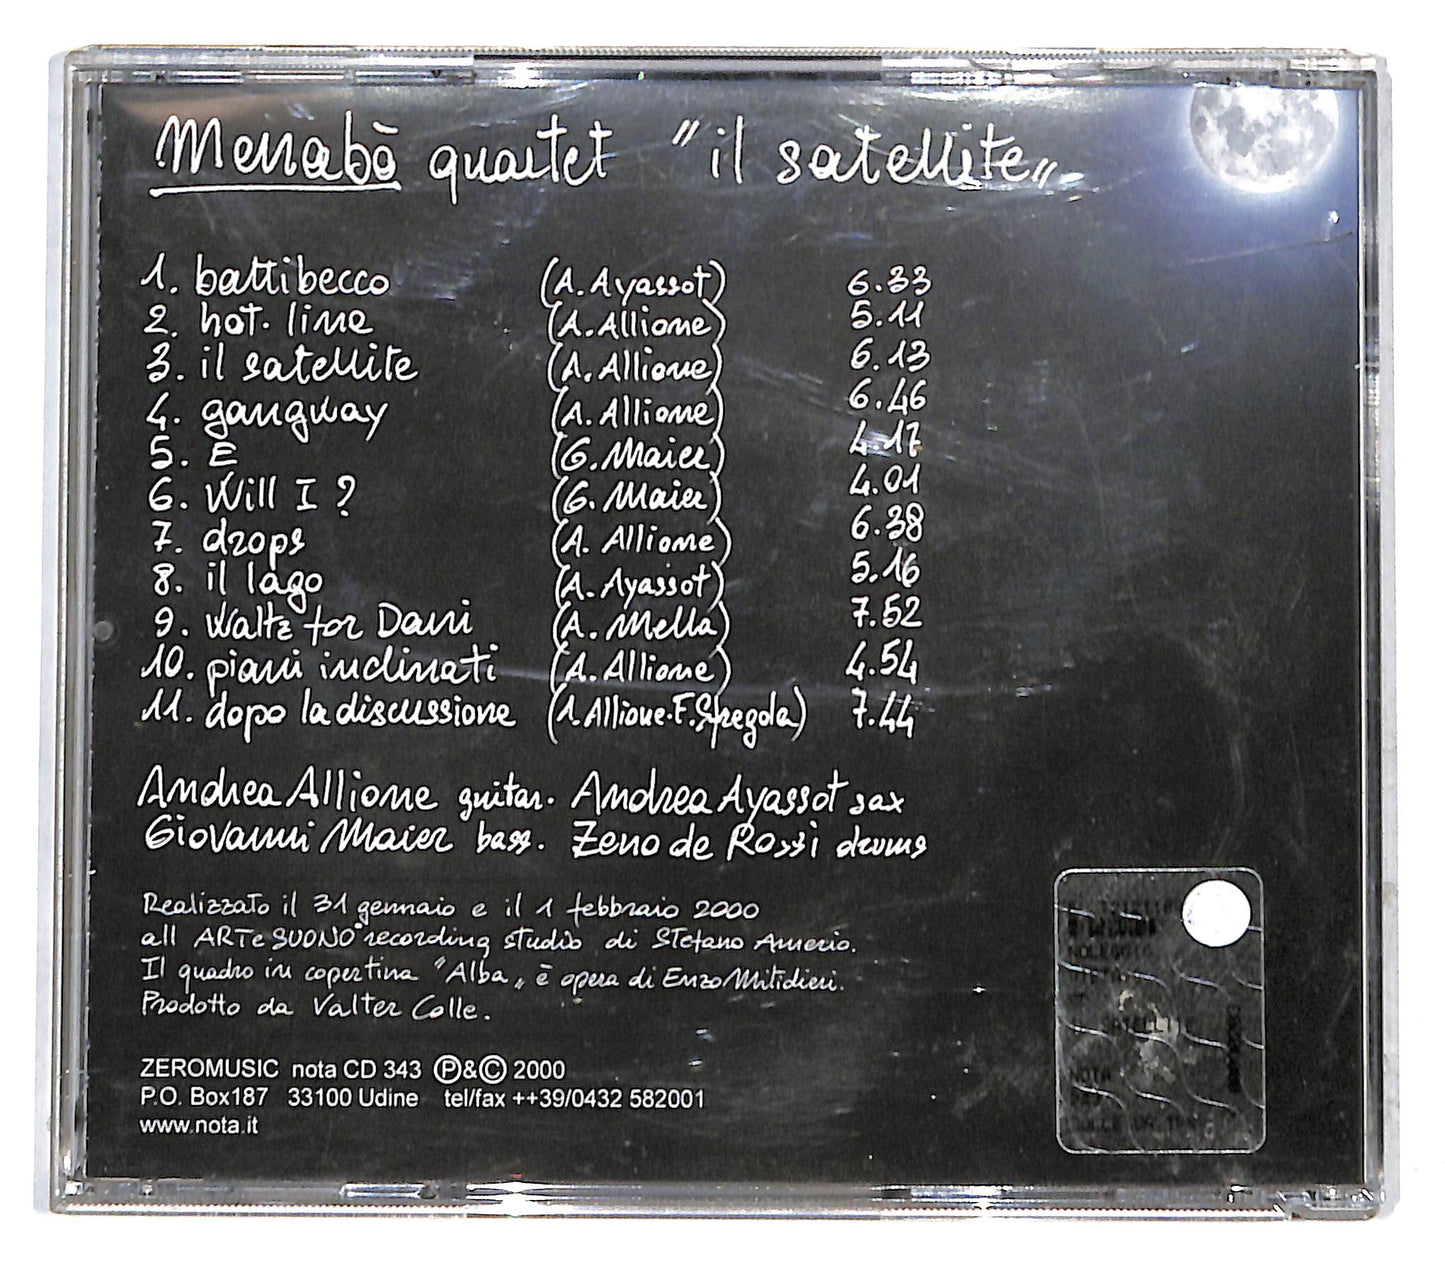 Menabò quartet "il satellite"
1. battibecco (A. Ayassot) 6.33
2. hot. line (A. Allione) 5.11
3. il satellite (A. Allione) 6.13
4. gangway (A. Allione) 6.46
5. E (G. Maier) 4.17
6. Will I? (G. Maier) 4.01
7. drops (A. Allione) 6.38
8. il lago (A. Ayassot) 5.16
9. Waltz for Dani (A. Mella) 7.52
10. piani inclinati (A. Allione) 4.54
11. dopo la discussione (A. Allione. F. Spegola) 7.44
Andrea Allione guitar. Andrea Ayassot sax
Giovanni Maier bass. Zeno de Rossi drums
Realizzato il 31 gennaio e il 1 febbraio 2000
all ARTeSUONO recording studio di Stefano Amerio.
Il quadro in copertina "Alba" è opera di Enzo Mitidieri.
Prodotto da Valter Colle.
ZEROMUSIC nota CD 343 Ⓟ&© 2000
P.O. Box187 33100 Udine tel/fax ++39/0432 582001
www.nota.it
NOLEGGIO
SATELLITE
NOTA